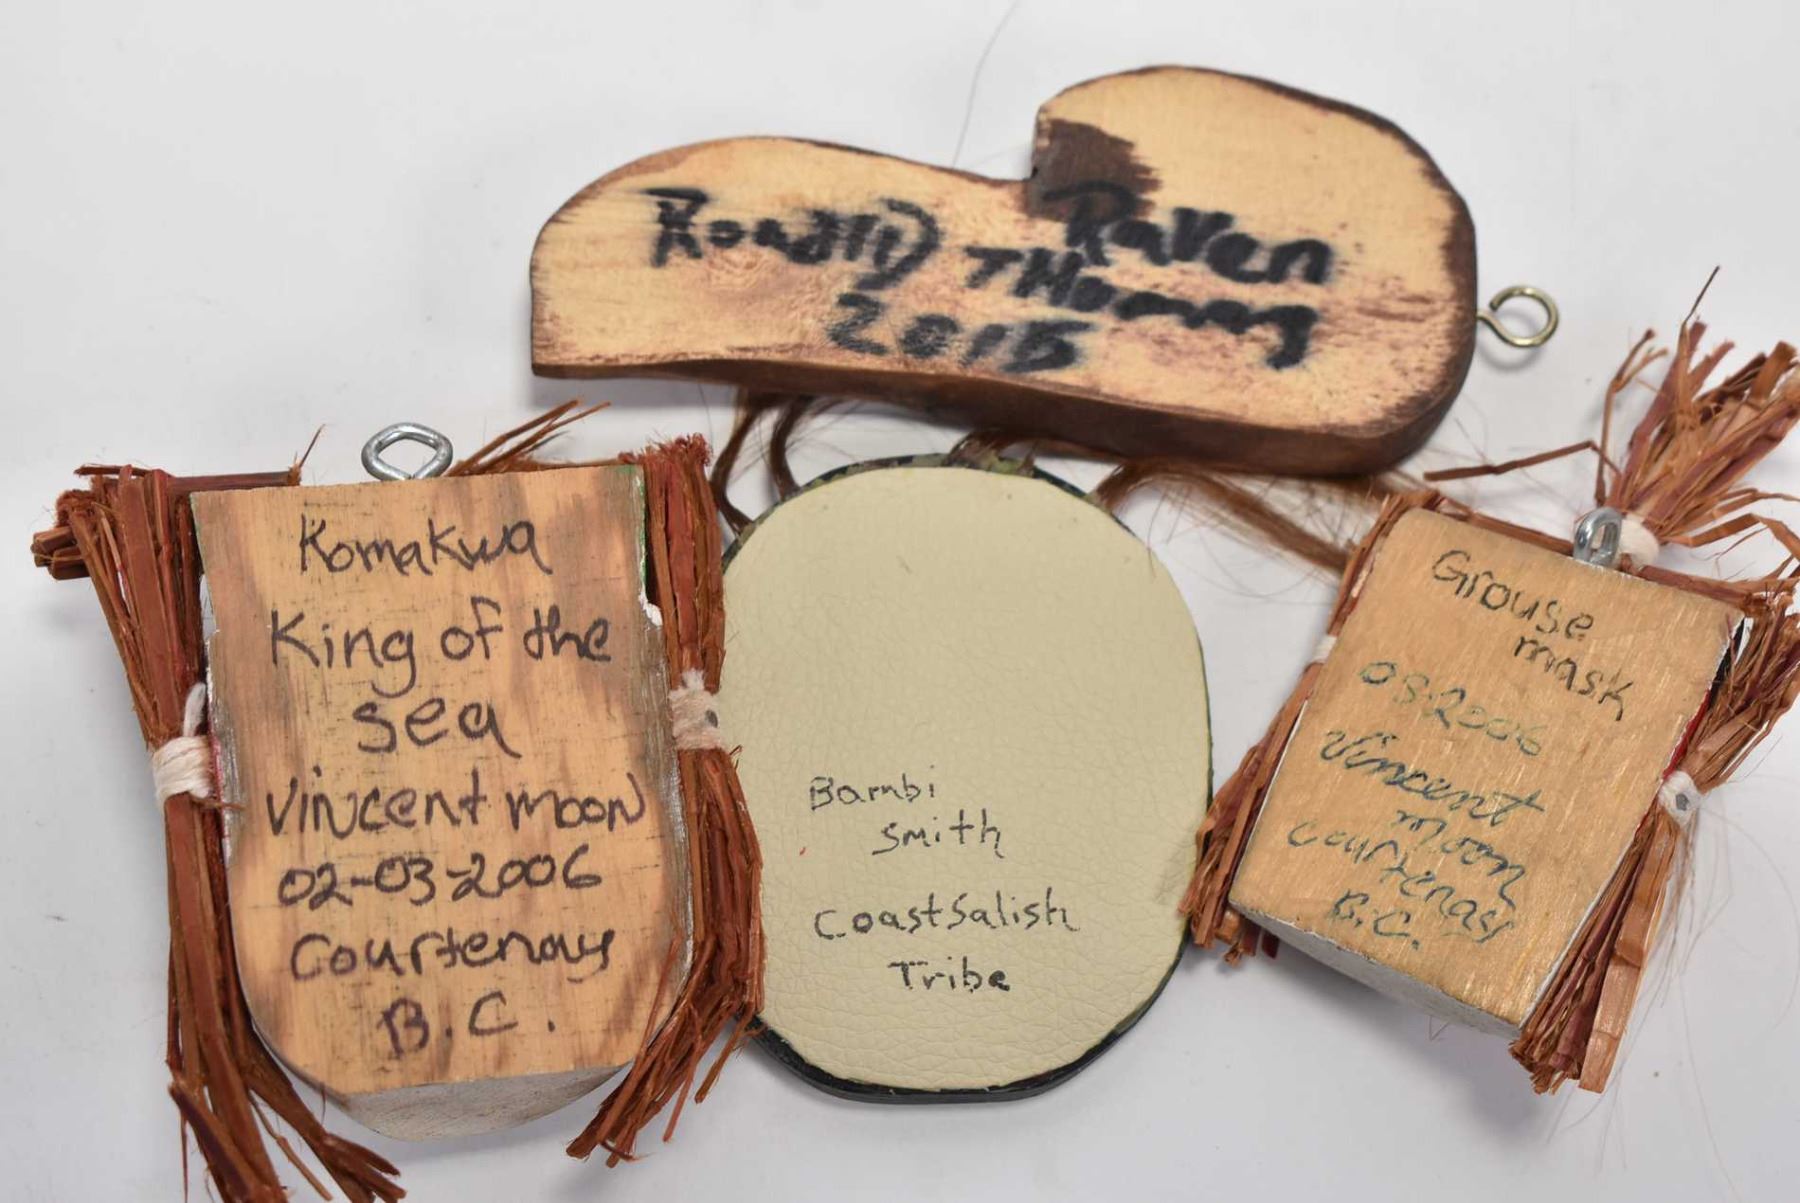 Raven
THomas
2015
Komakwa
King of the
sea
Vincent moon
02-03-2006
Courtenay
B.C.
Bambi
Smith
Coast Salish
Tribe
Grouse
mask
03-2006
Vincent
moon
Courtenay
B.C.